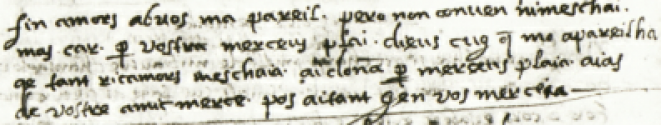 fin amors ab vos ma pareil. pero non conven nimeschai.
mas car. p vostra merceus plai. cheus cug q mo apareilha
qe tant ricamors meschaia. ai dona p merceus plaia. aias
de vostre amic merce. pos aitant gen vos merceia